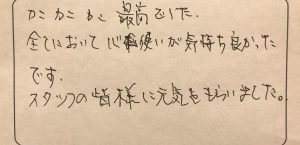 最高でした.
全てにおいて心遣いが気持ち良かった
です.
スタッフの皆様に元気をもらいました。